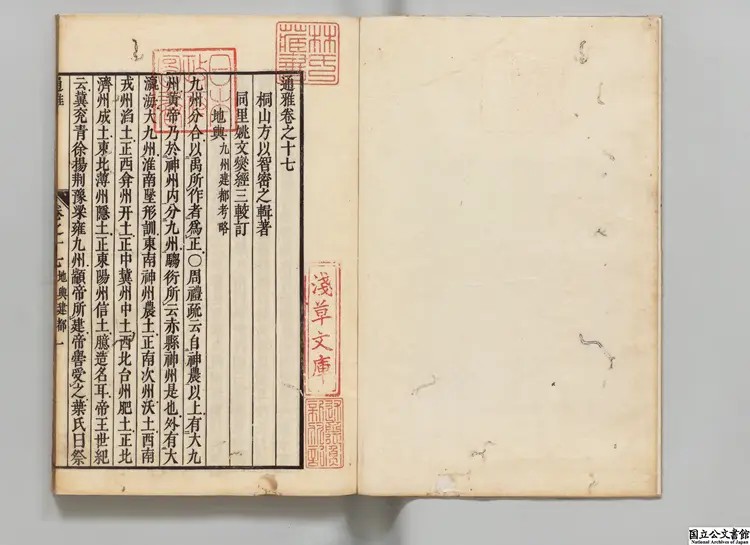 通雅卷之十七
桐山方以智密之輯著
同里姚文燮經三較訂
地輿 九州建都考略
九州分合以禹所作者爲正〇周禮疏云自神農以上有大九
州黄帝乃於神州内分九州騶衍所云赤縣神州是也外有大
瀛海大九州淮南墬形訓東南神州農土正南次州沃土西南
戎州滔土正西弇州开土正中冀州中土西北台州肥土正北
濟州成土東北薄州隱土正東陽州信土臆造名耳帝王世紀
云冀兗青徐揚荆豫梁雍九州顓帝所建帝嚳受之葉氏曰祭
通雅
卷之十七 地輿建都 一
林氏藏書
日本政府圖書
淺草文庫
国立公文書館
National Archives of Japan